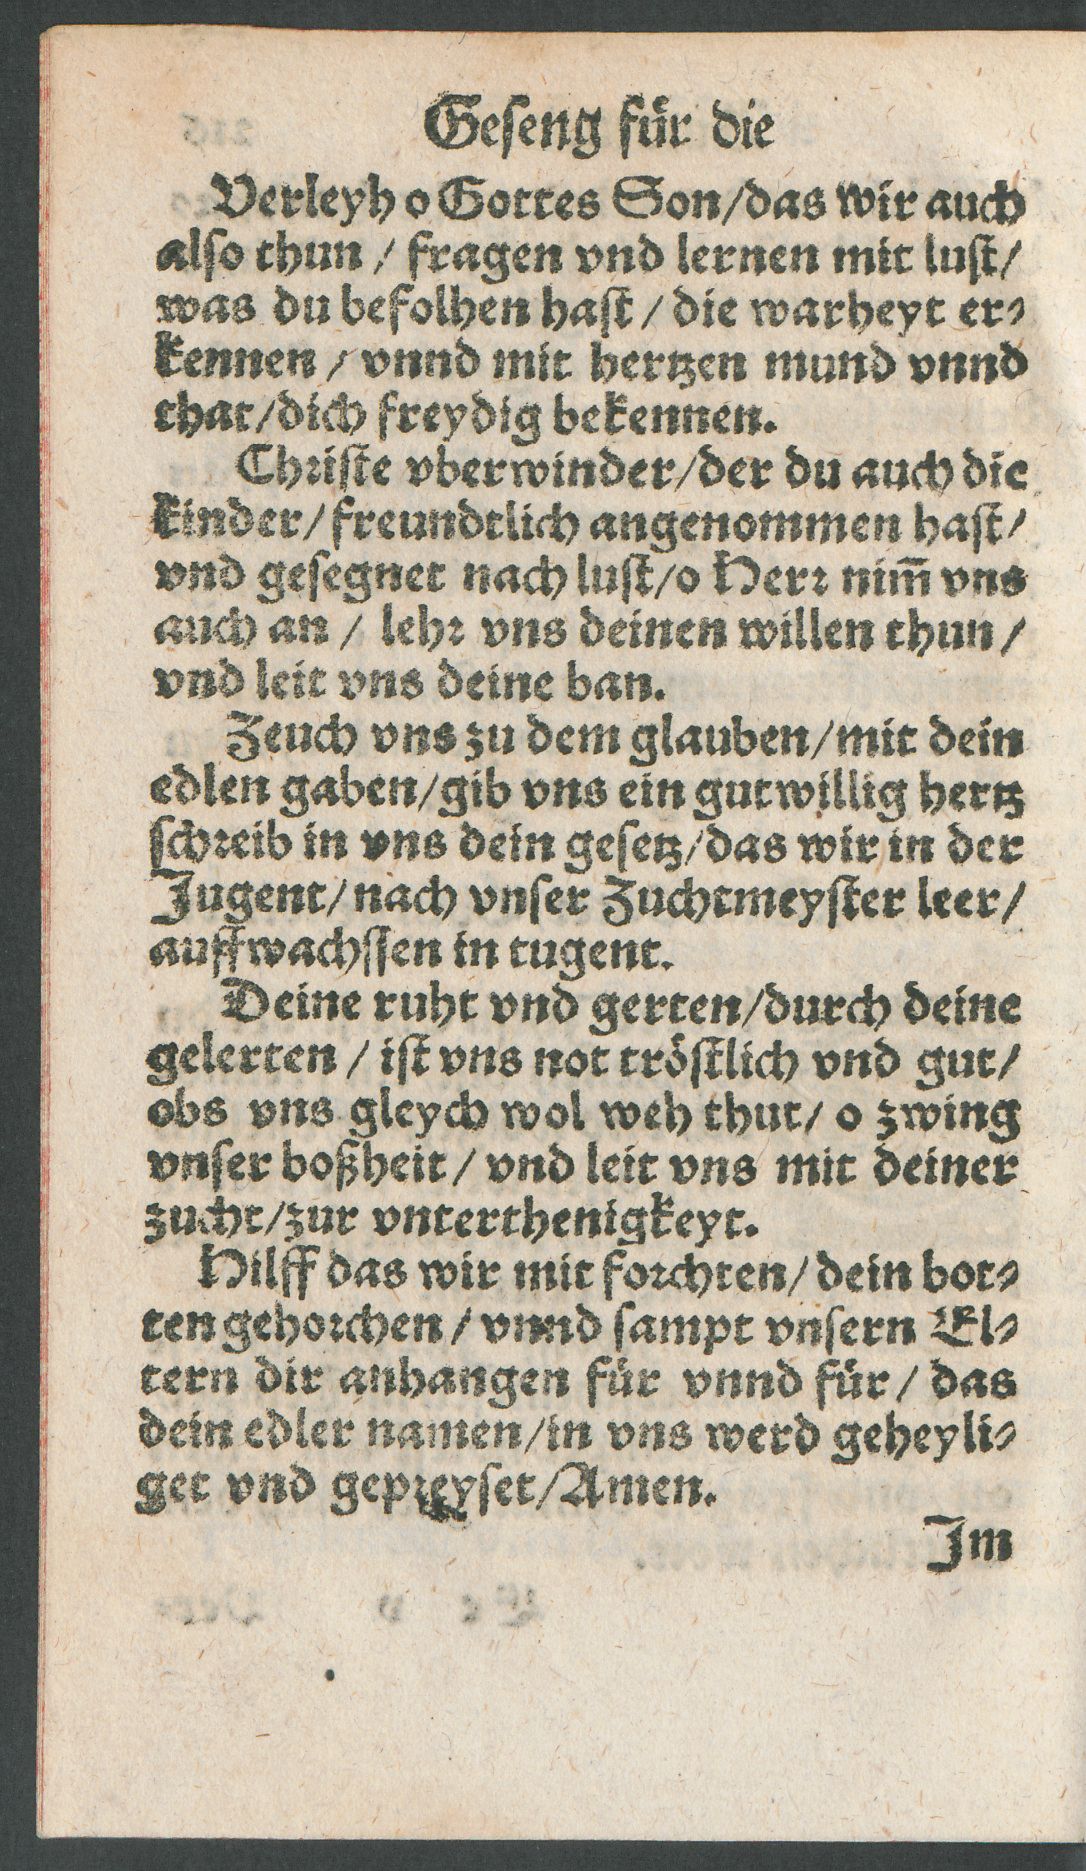 Geseng für die
Verleyh o Gottes Son/das wir auch
also thun / fragen vnd lernen mit lust/
was du befolhen hast / die warheyt er⸗
kennen / vnnd mit hertzen mund vnnd
that/dich freydig bekennen.
Christe vberwinder/der du auch die
kinder/ freundtlich angenommen hast/
vnd gesegnet nach lust/o Herr nim̃ vns
auch an / lehr vns deinen willen thun /
vnd leit vns deine ban.
Zeuch vns zu dem glauben/mit dein
edlen gaben/gib vns ein gutwillig hertz
schreib in vns dein gesetz/das wir in der
Jugent/ nach vnser Zuchtmeyster leer/
auffwachssen in tugent.
Deine ruht vnd gerten/durch deine
gelerten / ist vns not tröstlich vnd gut/
obs vns gleych wol weh thut/ o zwing
vnser boßheit / vnd leit vns mit deiner
zucht/zur vnterthenigkeyt.
Hilff das wir mit forchten/ dein bot⸗
ten gehorchen / vnnd sampt vnsern El⸗
tern dir anhangen für vnnd für / das
dein edler namen/in vns werd geheyli⸗
get vnd gepreyset/Amen.
Jm